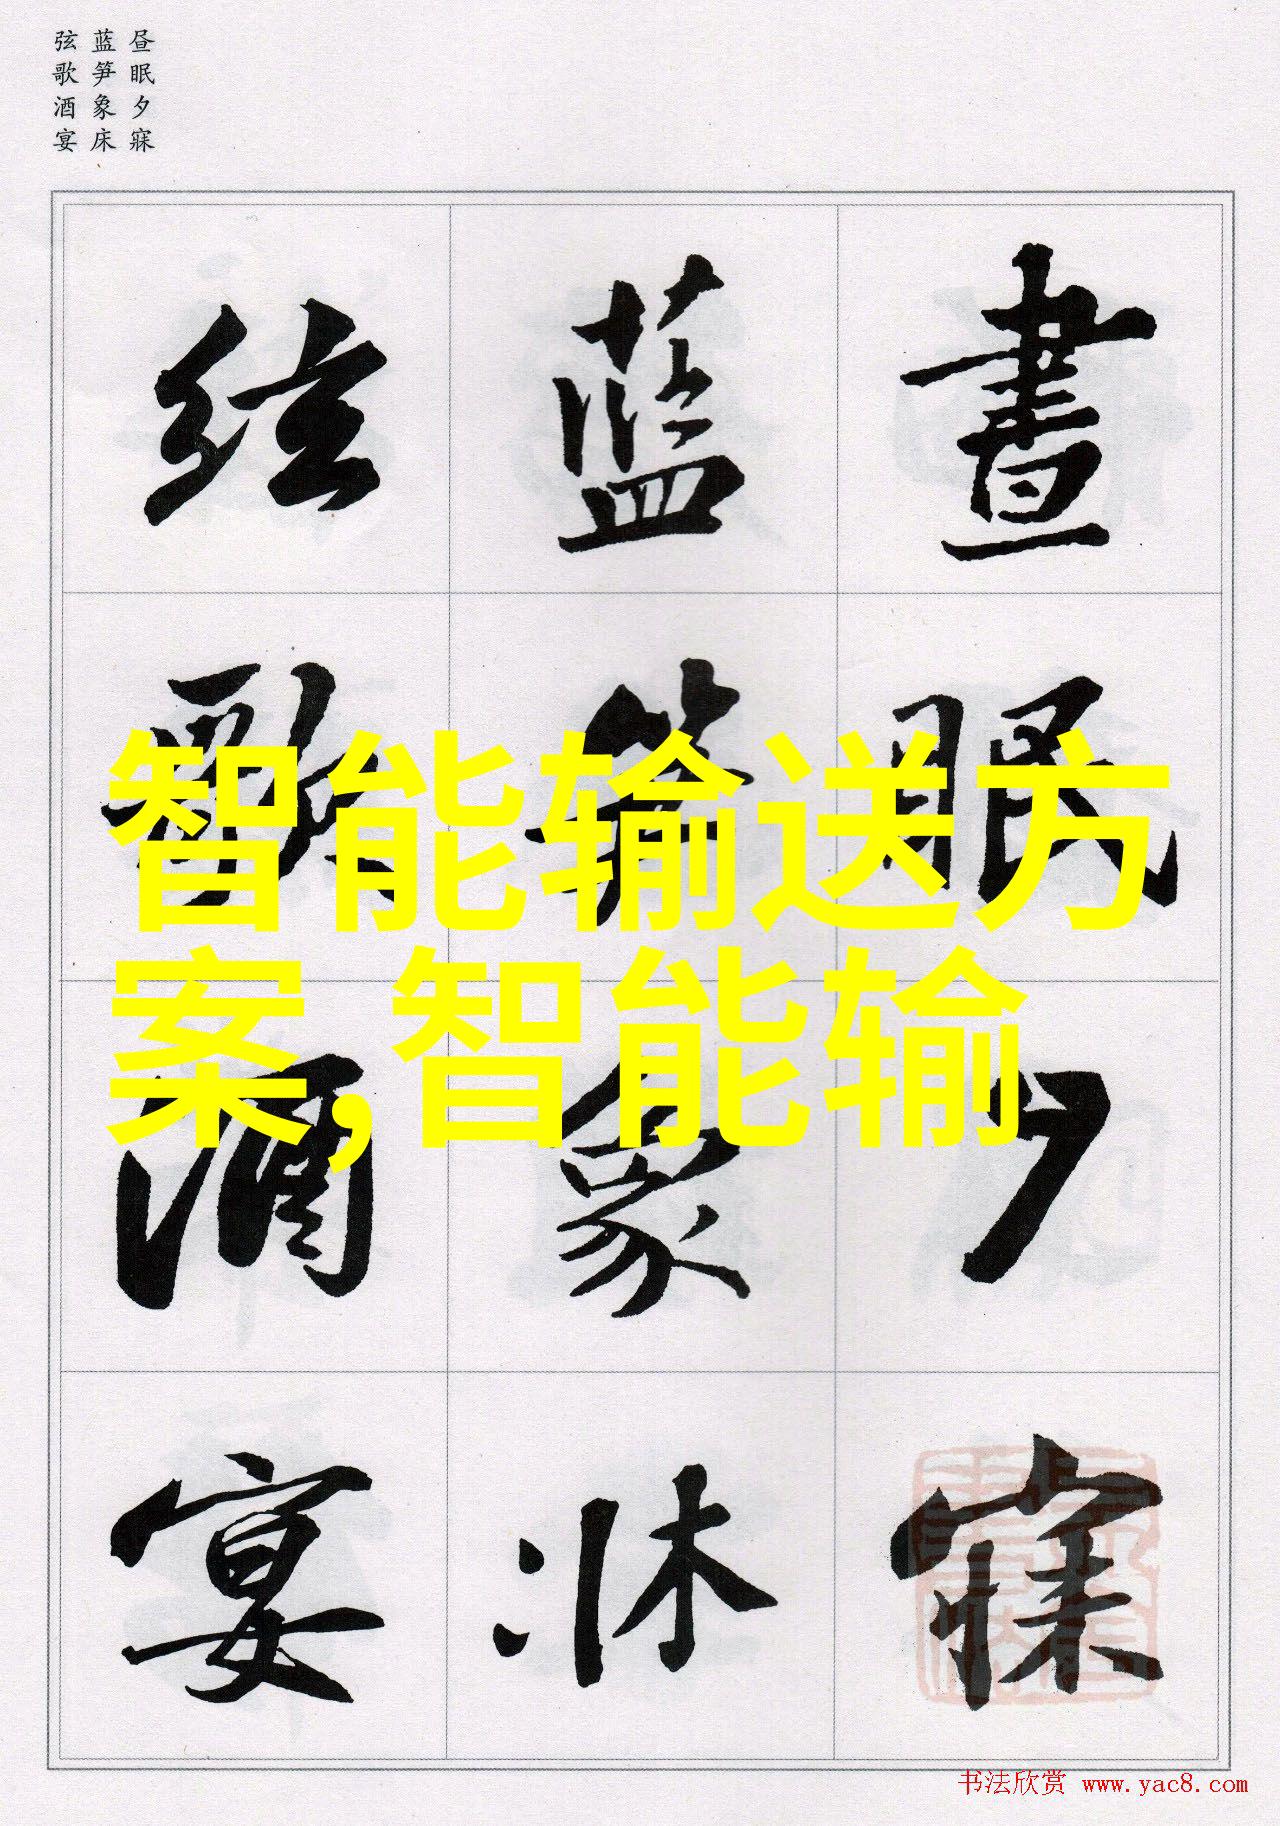 昼眠夕寐
蓝笋象床
弦歌酒宴
晝眠夕寐
蓝笋象床
弦歌酒宴
智能输送方
案,智能输
书法欣赏 www.yac8.com